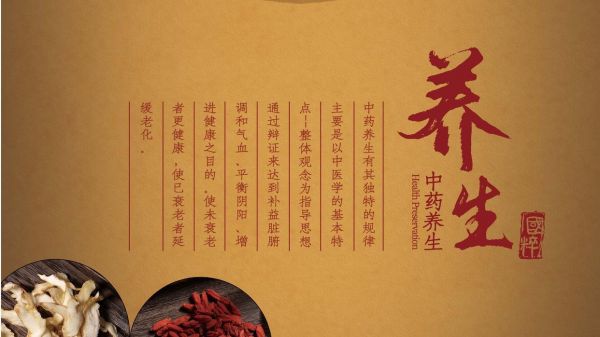 养生
國粹
中药养生
Health Preservation
中药养生有其独特的规律
主要是以中医学的基本特
点--整体观念为指导思想
通过辩证来达到补益脏腑
调和气血、平衡阴阳、增
进健康之目的。使未衰老
者更健康,使已衰老者延
缓老化。